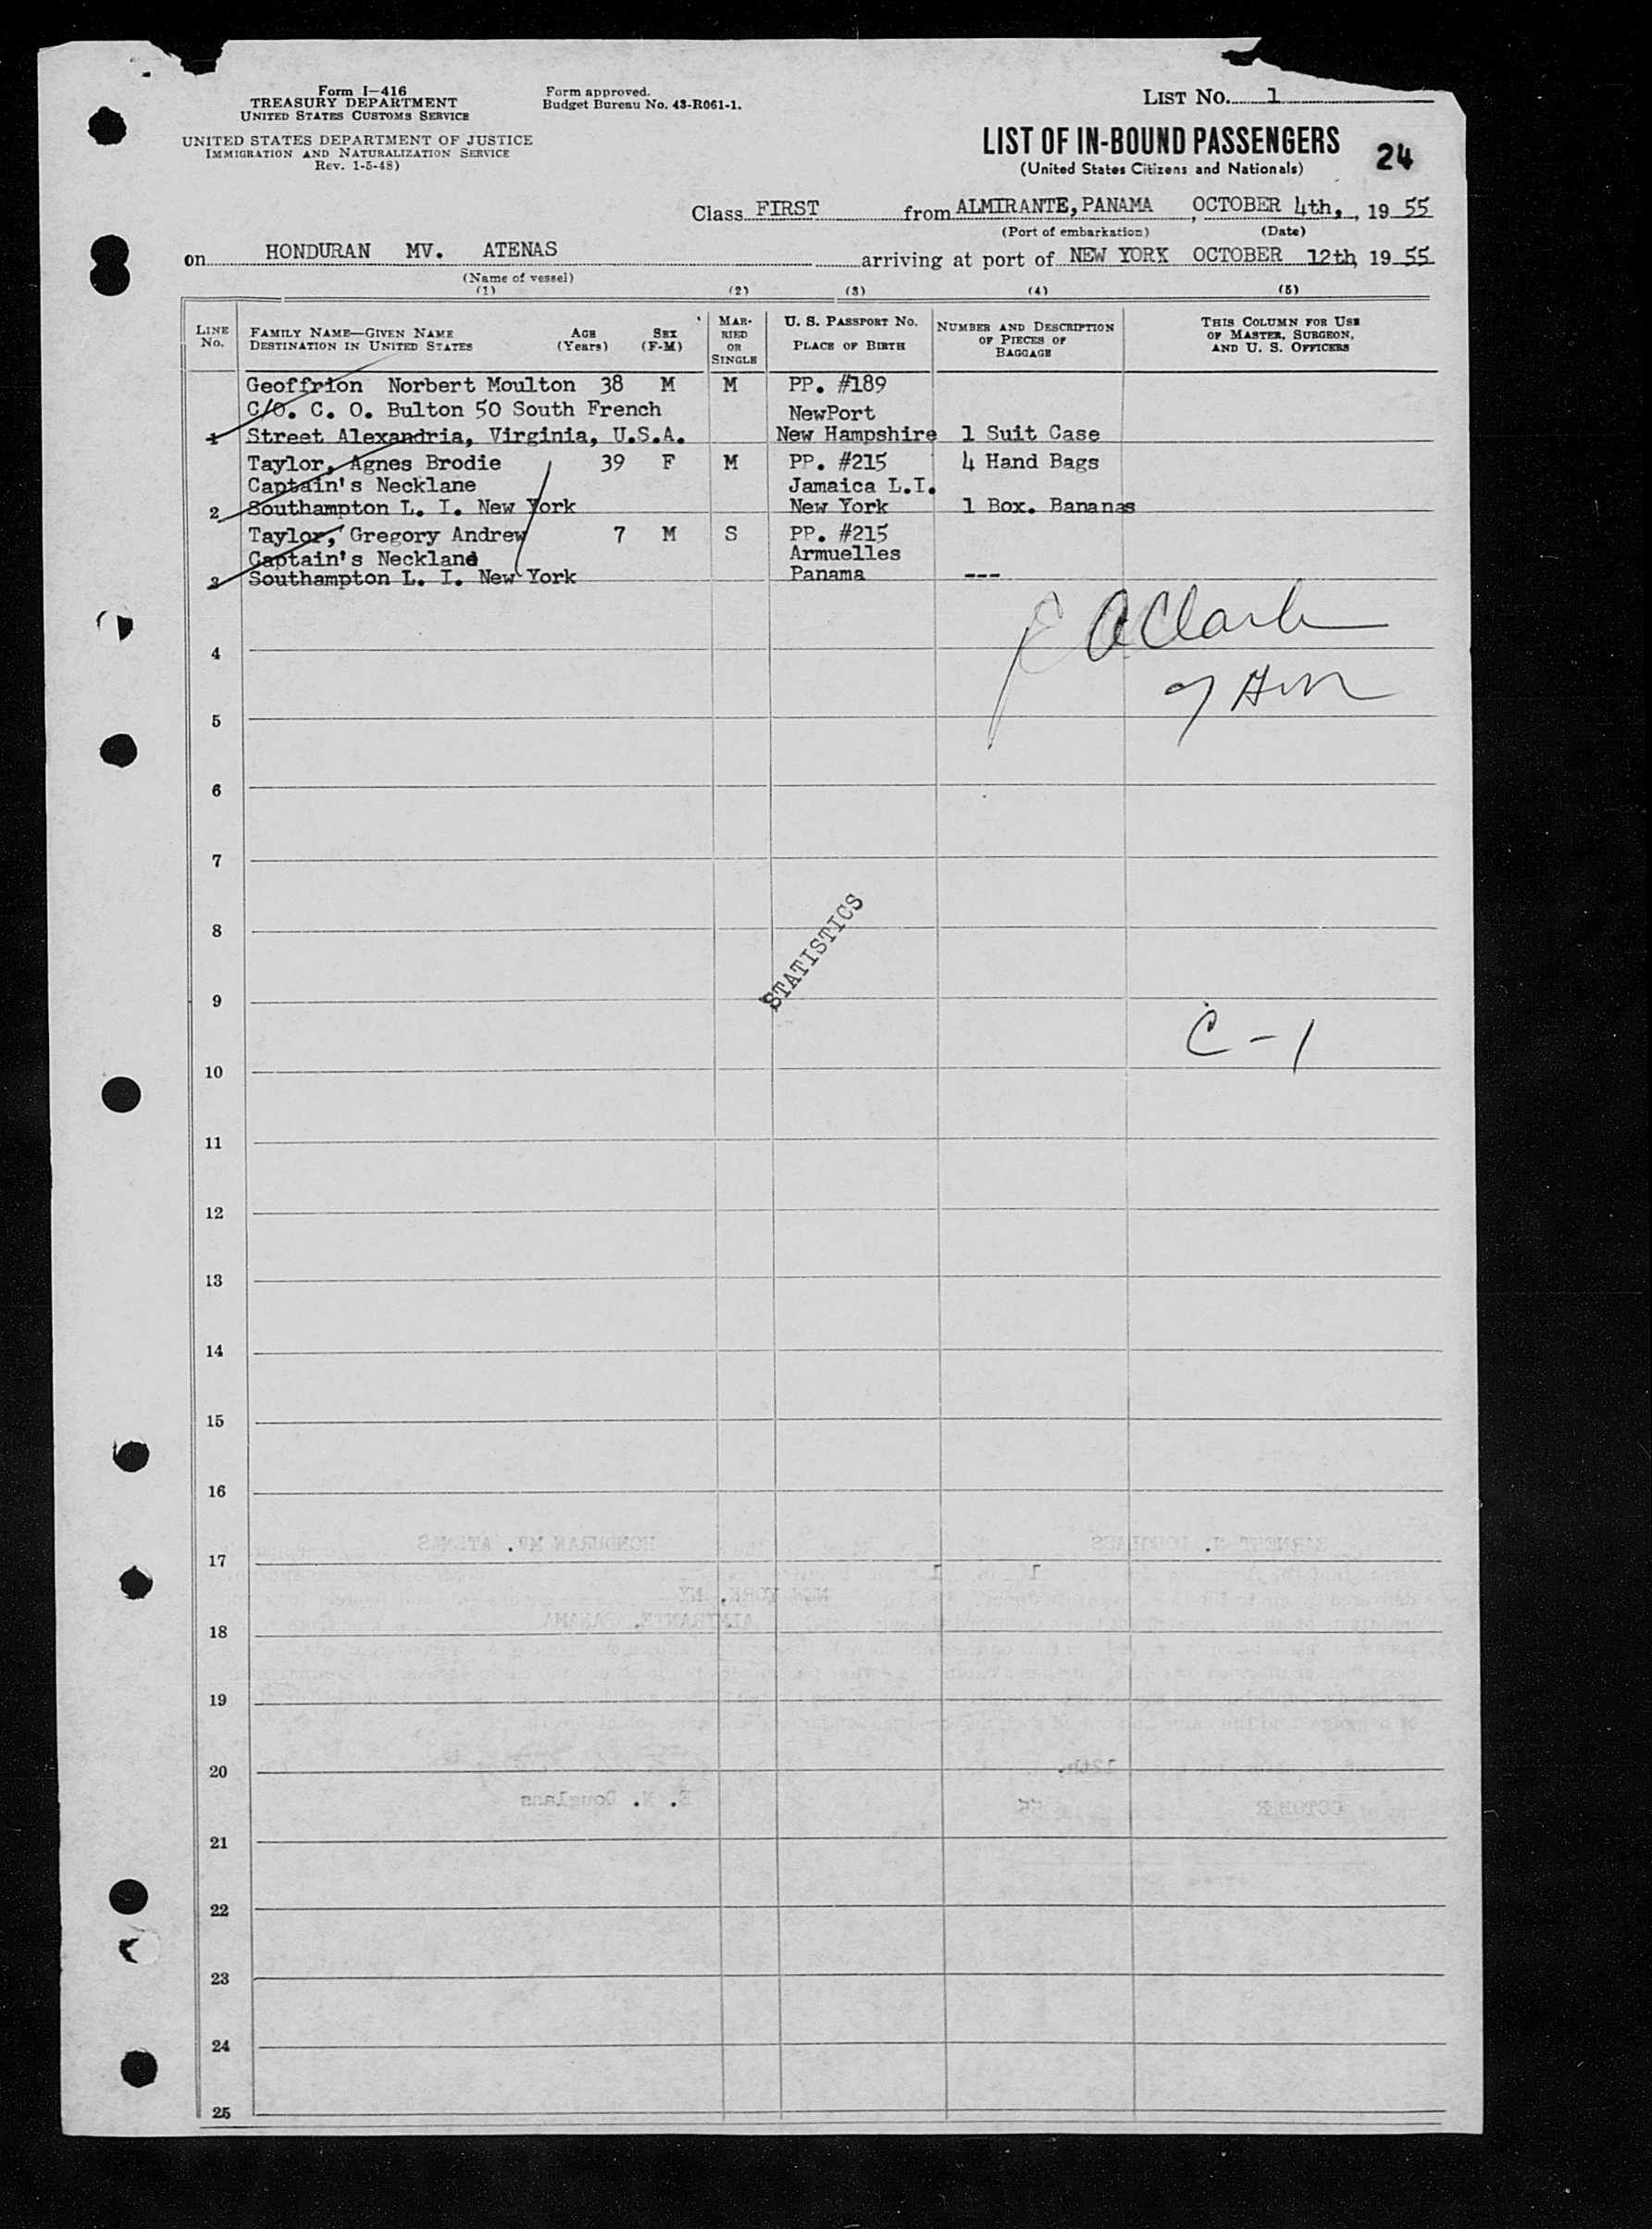 Form I-416
TREASURY DEPARTMENT
UNITED STATES CUSTOMS SERVICE
UNITED STATES DEPARTMENT OF JUSTICE
IMMIGRATION AND NATURALIZATION SERVICE
Rev. 1-5-48)
Form approved.
Budget Bureau No. 43-R061-1.
LIST NO. 1
LIST OF IN-BOUND PASSENGERS
(United States Citizens and Nationals)
24
Class FIRST from ALMIRANTE, PANAMA, OCTOBER 4th, , 19 55
(Port of embarkation) (Date)
on HONDURAN MV. ATENAS arriving at port of NEW YORK OCTOBER 12th 19 55
(Name of vessel)
(1) (2) (3) (4) (5)
LINE No.
FAMILY NAME—GIVEN NAME
DESTINATION IN UNITED STATES
AGE (Years)
SEX (F-M)
MARRIED OR SINGLE
U. S. PASSPORT NO.
PLACE OF BIRTH
NUMBER AND DESCRIPTION OF PIECES OF BAGGAGE
THIS COLUMN FOR USE OF MASTER, SURGEON, AND U. S. OFFICERS
Geoffrion Norbert Moulton 38 M M PP. #189
C/O. C. O. Bulton 50 South French NewPort
1 Street Alexandria, Virginia, U.S.A. New Hampshire 1 Suit Case
Taylor, Agnes Brodie 39 F M PP. #215 4 Hand Bags
Captain's Necklane Jamaica L.I.
2 Southampton L. I. New York New York 1 Box. Bananas
Taylor, Gregory Andrew 7 M S PP. #215
Captain's Neckland Armuelles
3 Southampton L. I. New York Panama ---
Clark
4
5
6
7
8
STATISTICS
9
C-1
10
11
12
13
14
15
16
17
18
19
20
21
22
23
24
25
EARNEST N. DOUGLASS HONDURAN MV. ATENAS
1 1
NEW YORK, NY
ALMIRANTE, PANAMA
12th,
E. N. Douglass
OCTOBER 55